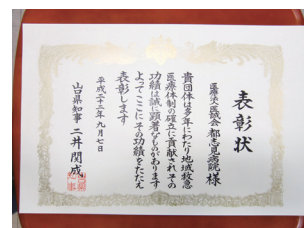 表彰状
医療法人医誠会都志見病院様
貴団体は多年にわたり地域救急
医療体制の確立に貢献されその
功績は誠に顕著なものがあります
よってここにその功績をたたえ
表彰します
平成二十二年九月七日
山口県知事 二井関成